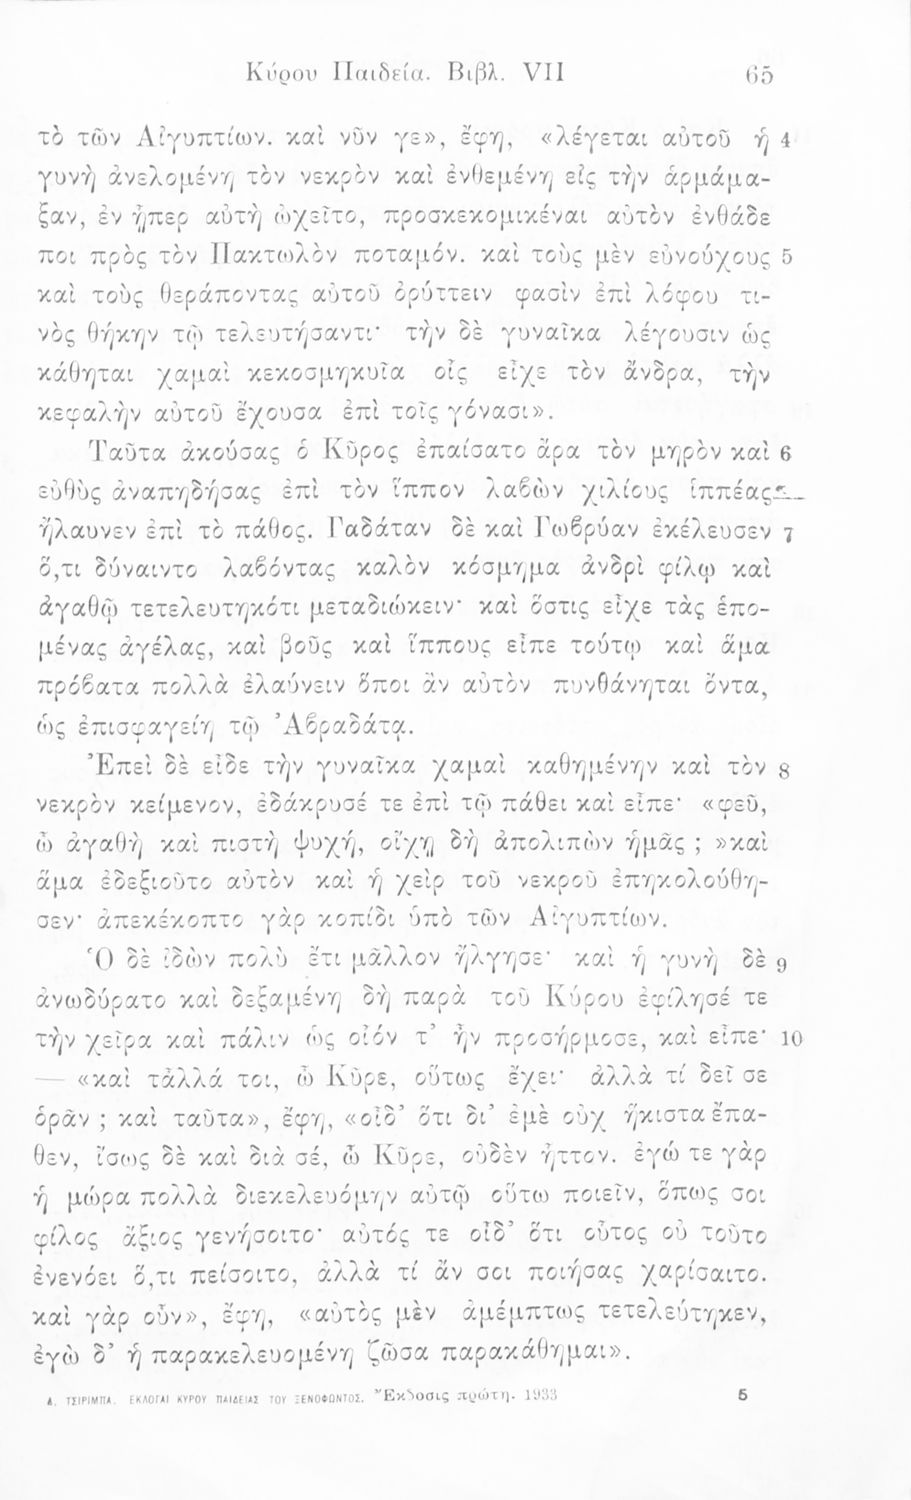 Κύρου Παιδεία. Βιβλ. VII 65
τὸ τῶν Αἰγυπτίων. καὶ νῦν γε», ἔφη, «λέγεται αὐτοῦ ἡ 4
γυνὴ ἀνελομένη τὸν νεκρὸν καὶ ἐνθεμένη εἰς τὴν ἁρμάμα-
ξαν, ἐν ᾗπερ αὐτὴ ὠχεῖτο, προσκεκομικέναι αὐτὸν ἐνθάδε
ποι πρὸς τὸν Πακτωλὸν ποταμόν. καὶ τοὺς μὲν εὐνούχους 5
καὶ τοὺς θεράποντας αὐτοῦ ὀρύττειν φασὶν ἐπὶ λόφου τι-
νὸς θήκην τῷ τελευτήσαντι· τὴν δὲ γυναῖκα λέγουσιν ὡς
κάθηται χαμαὶ κεκοσμηκυῖα οἷς εἶχε τὸν ἄνδρα, τὴν
κεφαλὴν αὐτοῦ ἔχουσα ἐπὶ τοῖς γόνασι».
Ταῦτα ἀκούσας ὁ Κῦρος ἐπαίσατο ἄρα τὸν μηρὸν καὶ 6
εὐθὺς ἀναπηδήσας ἐπὶ τὸν ἵππον λαβὼν χιλίους ἱππέας
ἤλαυνεν ἐπὶ τὸ πάθος. Γαδάταν δὲ καὶ Γωβρύαν ἐκέλευσεν 7
ὅ,τι δύναιντο λαβόντας καλὸν κόσμημα ἀνδρὶ φίλῳ καὶ
ἀγαθῷ τετελευτηκότι μεταδιώκειν· καὶ ὅστις εἶχε τὰς ἑπο-
μένας ἀγέλας, καὶ βοῦς καὶ ἵππους εἶπε τούτῳ καὶ ἅμα
πρόβατα πολλὰ ἐλαύνειν ὅποι ἂν αὐτὸν πυνθάνηται ὄντα,
ὡς ἐπισφαγείη τῷ Ἀβραδάτᾳ.
Ἐπεὶ δὲ εἶδε τὴν γυναῖκα χαμαὶ καθημένην καὶ τὸν 8
νεκρὸν κείμενον, ἐδάκρυσέ τε ἐπὶ τῷ πάθει καὶ εἶπε· «φεῦ,
ὦ ἀγαθὴ καὶ πιστὴ ψυχή, οἴχῃ δὴ ἀπολιπὼν ἡμᾶς ; »καὶ
ἅμα ἐδεξιοῦτο αὐτὸν καὶ ἡ χεὶρ τοῦ νεκροῦ ἐπηκολούθη-
σεν· ἀπεκέκοπτο γὰρ κοπίδι ὑπὸ τῶν Αἰγυπτίων.
Ὁ δὲ ἰδὼν πολὺ ἔτι μᾶλλον ἤλγησε· καὶ ἡ γυνὴ δὲ 9
ἀνωδύρατο καὶ δεξαμένη δὴ παρὰ τοῦ Κύρου ἐφίλησέ τε
τὴν χεῖρα καὶ πάλιν ὡς οἷόν τ' ἦν προσήρμοσε, καὶ εἶπε· 10
— «καὶ τἆλλά τοι, ὦ Κῦρε, οὕτως ἔχει· ἀλλὰ τί δεῖ σε
ὁρᾶν ; καὶ ταῦτα», ἔφη, «οἶδ' ὅτι δι' ἐμὲ οὐχ ἥκιστα ἔπα-
θεν, ἴσως δὲ καὶ διὰ σέ, ὦ Κῦρε, οὐδὲν ἧττον. ἐγώ τε γὰρ
ἡ μώρα πολλὰ διεκελευόμην αὐτῷ οὕτω ποιεῖν, ὅπως σοι
φίλος ἄξιος γενήσοιτο· αὐτός τε οἶδ' ὅτι οὗτος οὐ τοῦτο
ἐνενόει ὅ,τι πείσοιτο, ἀλλὰ τί ἄν σοι ποιήσας χαρίσαιτο.
καὶ γὰρ οὖν», ἔφη, «αὐτὸς μὲν ἀμέμπτως τετελεύτηκεν,
ἐγὼ δ' ἡ παρακελευομένη ζῶσα παρακάθημαι».
Δ. ΤΣΙΡΙΜΠΑ. ΕΚΛΟΓΑΙ ΚΥΡΟΥ ΠΑΙΔΕΙΑΣ ΤΟΥ ΞΕΝΟΦΩΝΤΟΣ. Ἔκδοσις πρώτη. 1933 5